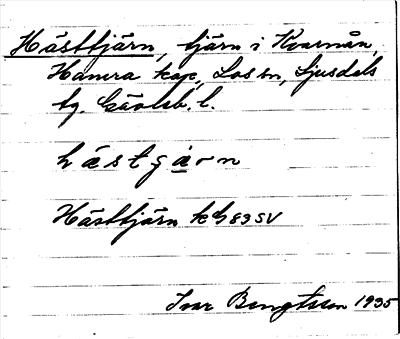 Hästtjärn, tjärn i Kvarnån,
Hamra kap, Los sn, Ljusdals
tg. Gävleb. l.
hästgärn
Hästtjärn kG83SV
Ivar Bengtsson 1935